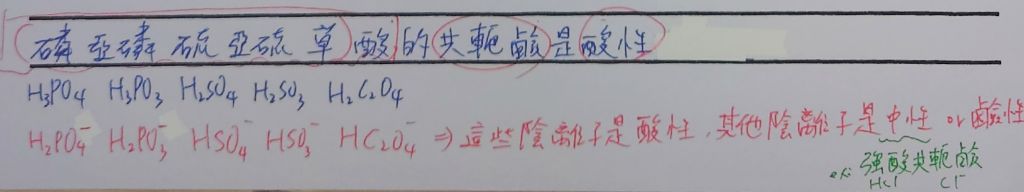 磷 亞磷 硫 亞硫 草 酸 的 共軛鹼 是 酸性
H₃PO₄ H₃PO₃ H₂SO₄ H₂SO₃ H₂C₂O₄
H₂PO₄⁻ H₂PO₃⁻ HSO₄⁻ HSO₃⁻ HC₂O₄⁻ ⇒ 這些陰離子是酸性, 其他陰離子是中性 or 鹼性
ex: 強酸共軛鹼
HCl Cl⁻